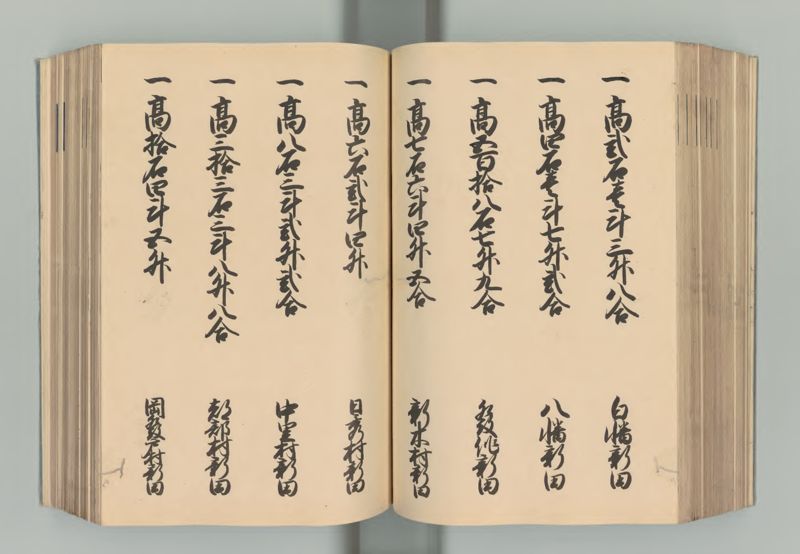 一 高弐石壱斗三升八合 白幡新田
一 高四石壱斗七升弐合 八幡新田
一 高五百拾八石七升九合 新田
一 高七石六斗四升五合 新木村新田
一 高六石弐斗四升 日秀村新田
一 高八石三斗弐升弐合 中里村新田
一 高三拾三石三斗八升八合 都部村新田
一 高拾石四斗五升 岡発戸村新田